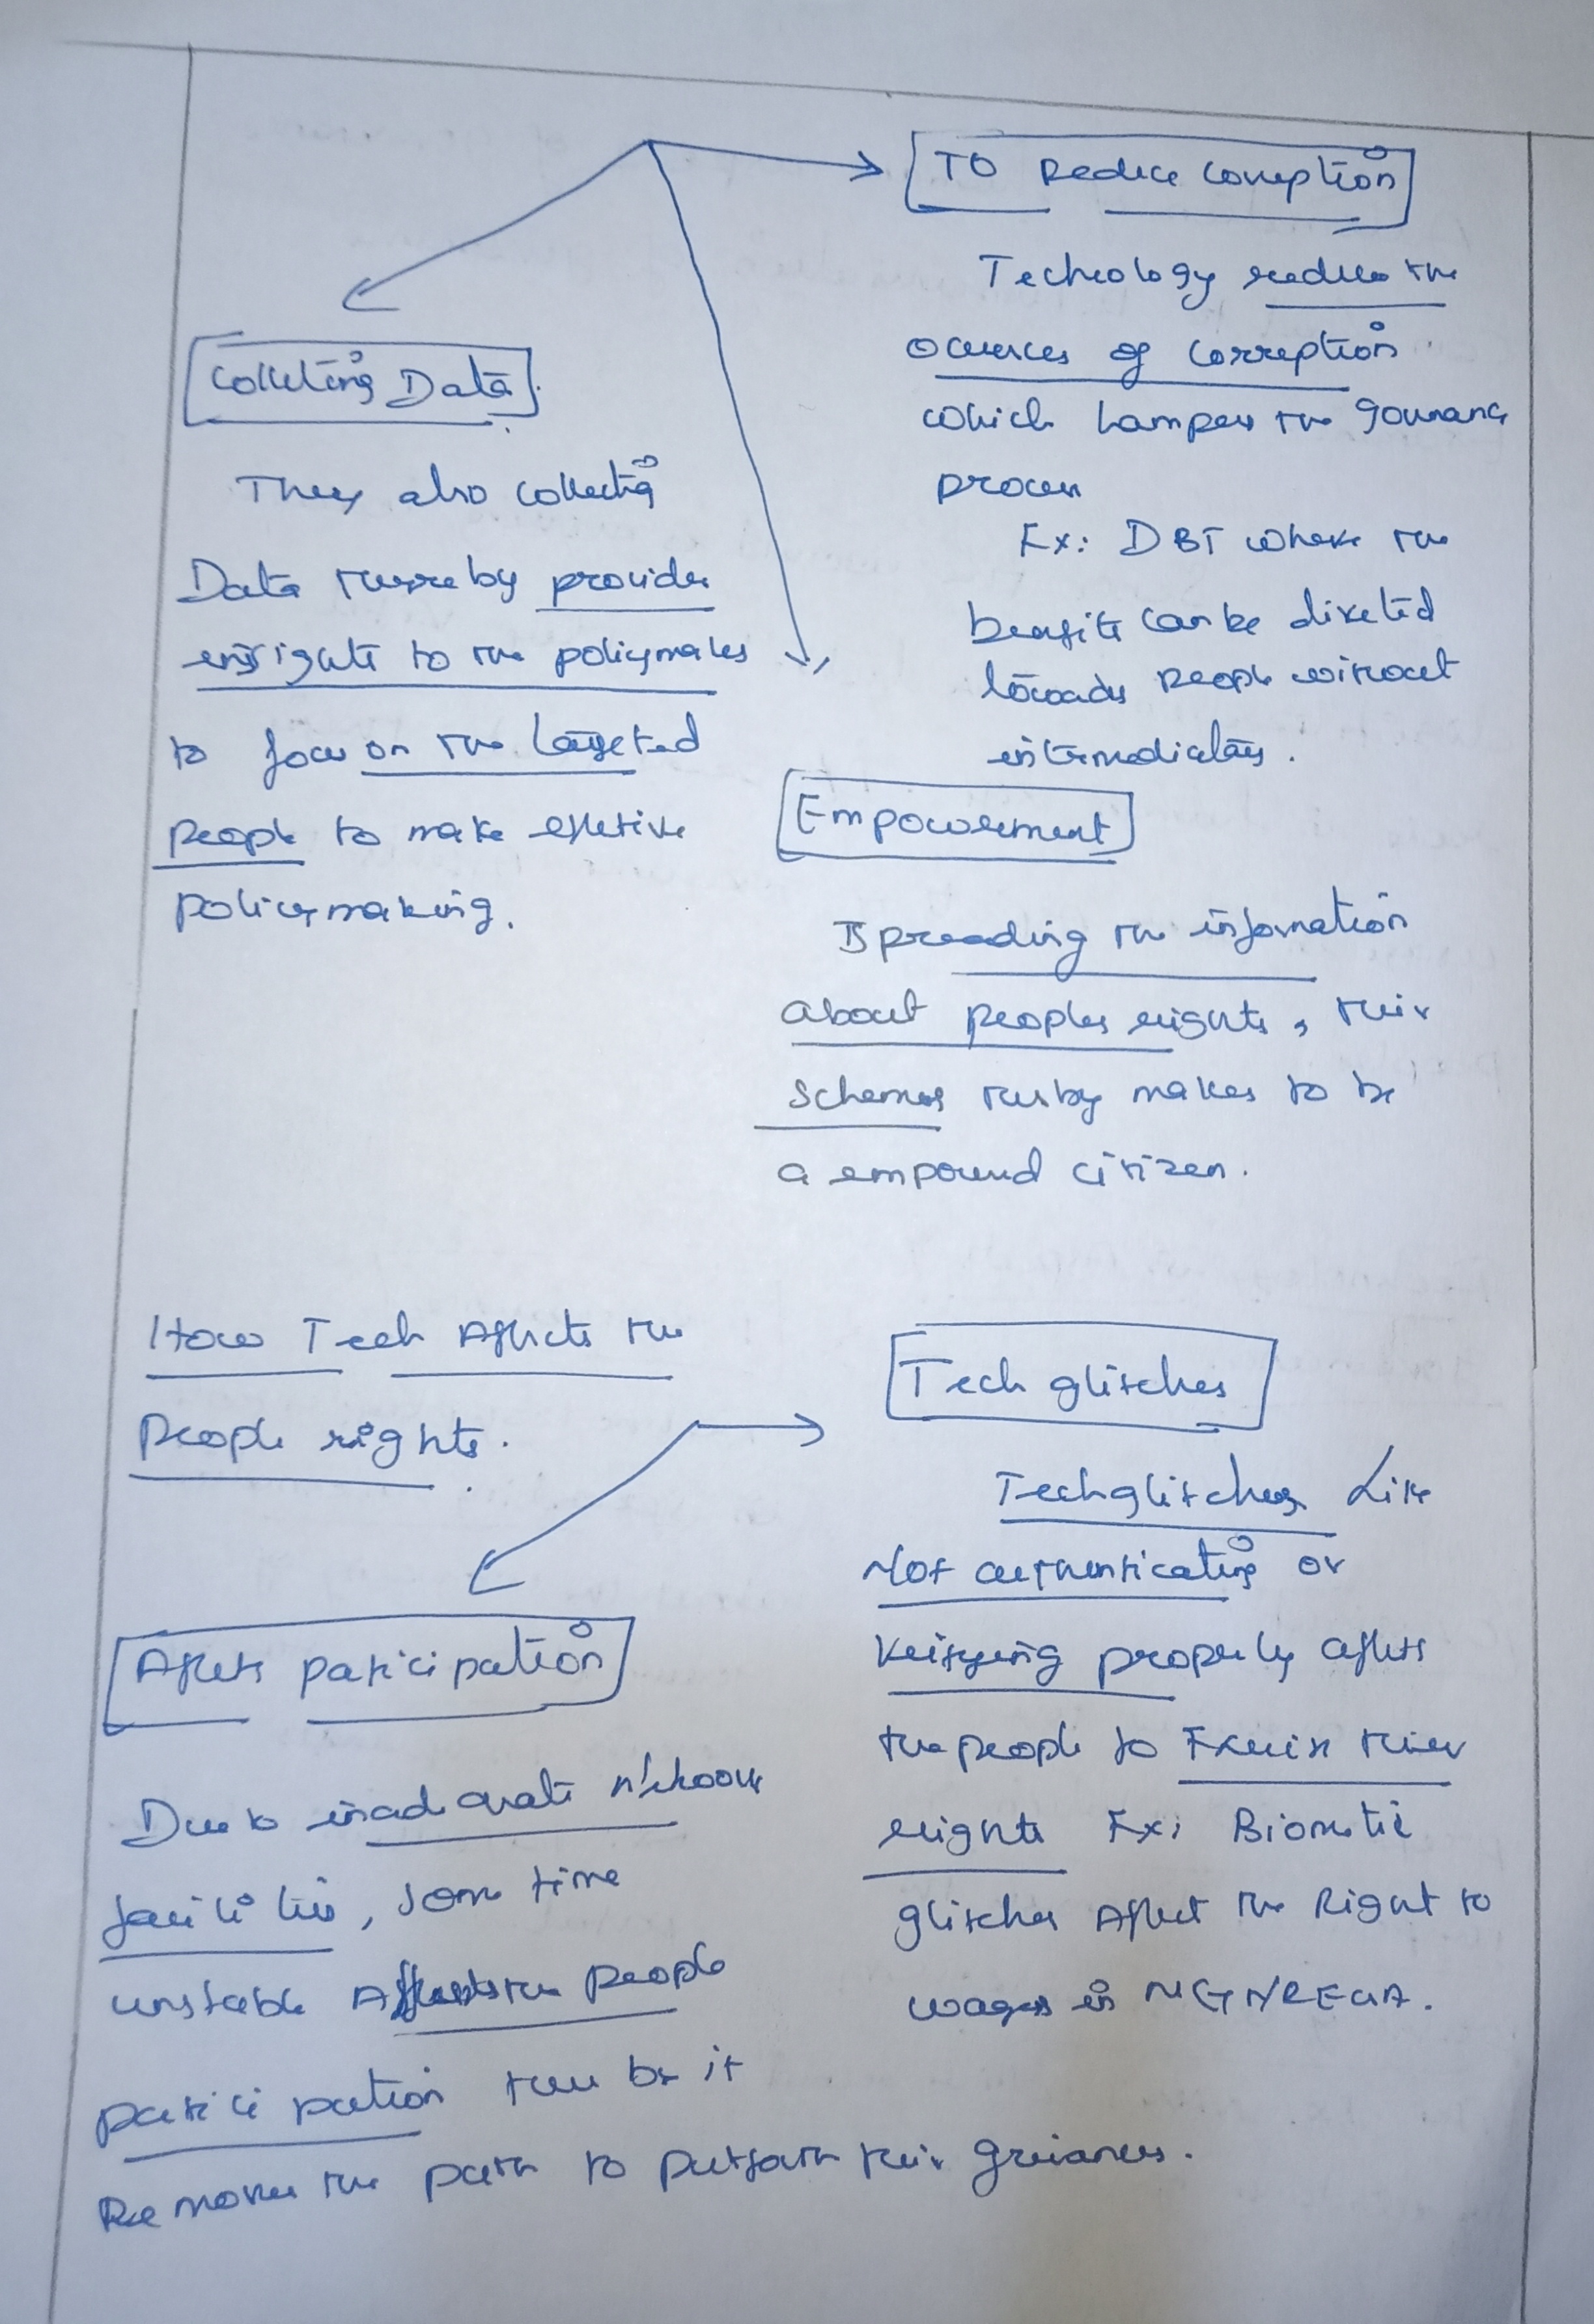 TO Reduce Corruption
Technology reduces the
occurences of corruption
which hampers the governance
process
Ex: DBT where the
benefits can be directed
towards people without
intermediataries.
Collecting Data.
They also collecting
Data thereby provides
insights to the policymakers
to focus on the targeted
people to make effective
policymaking.
Empowerment
Spreading the information
about peoples rights, their
schemes thereby makes to be
a empowered citizen.
How Tech Affects the
people rights.
Tech glitches
Tech glitches Like
Not authenticating or
Verifying properly affects
the people to their
rights Ex: Biometric
glitches Affect the Right to
wages in MGNREGA.
Affects participation
Due to inadequate network
facilities, some time
unstable Affects the people
participation there by it
Removes the path to putforth their grievances.